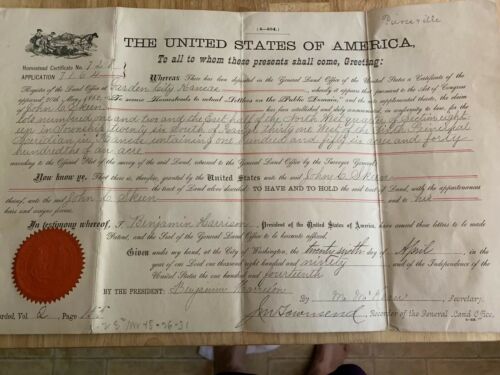 (4-404.)
Pierceville
THE UNITED STATES OF AMERICA,
To all to whom these presents shall come, Greeting:
Homestead Certificate No.
APPLICATION 7164
Whereas There has been deposited in the General Land Office of the United States a Certificate of the
Register of the Land Office at Garden City Kansas, whereby it appears that pursuant to the Act of Congress
approved 20th May, 1862, "To secure Homesteads to actual Settlers on the Public Domain," and the acts supplemental thereto, the claim of
John C Skeen has been established and duly consummated, in conformity to law, for the
lots numbered one and two and the East half of the North West quarter of Section eight
een in Township twenty six South of Range thirty one West of the Sixth Principal
Meridian in Kansas containing one hundred and fifty six acres and forty
hundredths of an acre
according to the Official Plat of the survey of the said Land, returned to the General Land Office by the Surveyor General.
Now know ye, That there is, therefore, granted by the United States unto the said John C Skeen
the tract of Land above described; TO HAVE AND TO HOLD the said tract of Land, with the appurtenances
thereof, unto the said John C Skeen and to his
heirs and assigns forever.
In testimony whereof, I Benjamin Harrison, President of the United States of America, have caused these letters to be made
Patent, and the Seal of the General Land Office to be hereunto affixed.
Given under my hand, at the City of Washington, the twenty sixth day of April, in the
year of our Lord one thousand eight hundred and ninety, and of the Independence of the
United States the one hundred and fourteenth
BY THE PRESIDENT: Benjamin Harrison
By Secretary.
J M Townsend, Recorder of the General Land Office.
Recorded, Vol. 2, Page
26-31